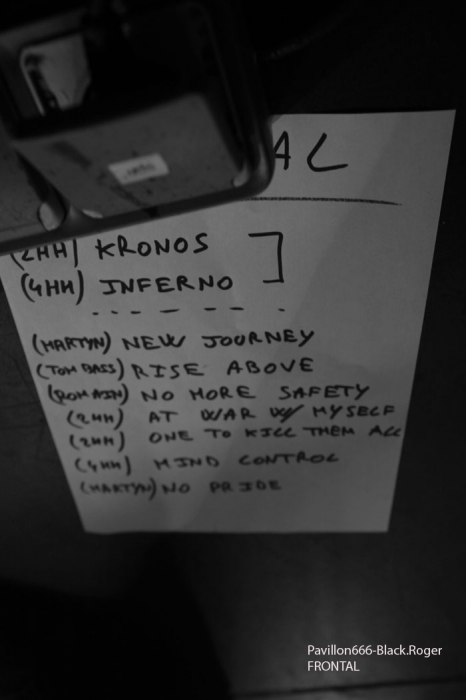 AL
(2HH) KRONOS
(4HH) INFERNO
(MARTYN) NEW JOURNEY
(TOM BASS) RISE ABOVE
(ROMAIN) NO MORE SAFETY
(2HH) AT WAR W/ MYSELF
(2HH) ONE TO KILL THEM ALL
(4HH) MIND CONTROL
(MARTYN) NO PRIDE
Pavillon666-Black.Roger
FRONTAL